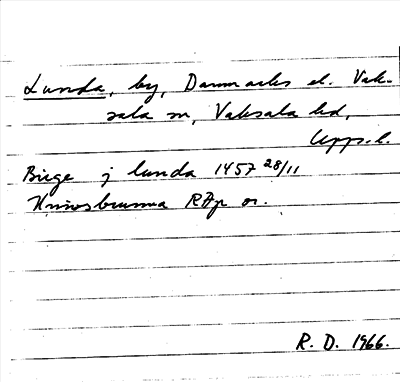 Lunda, by, Danmarks el. Vak-
sala sn, Vaksala hd,
Upps. l.
Birge j lunda 1457 28/11
Hninosbrunna RAp or.
R. D. 1966.